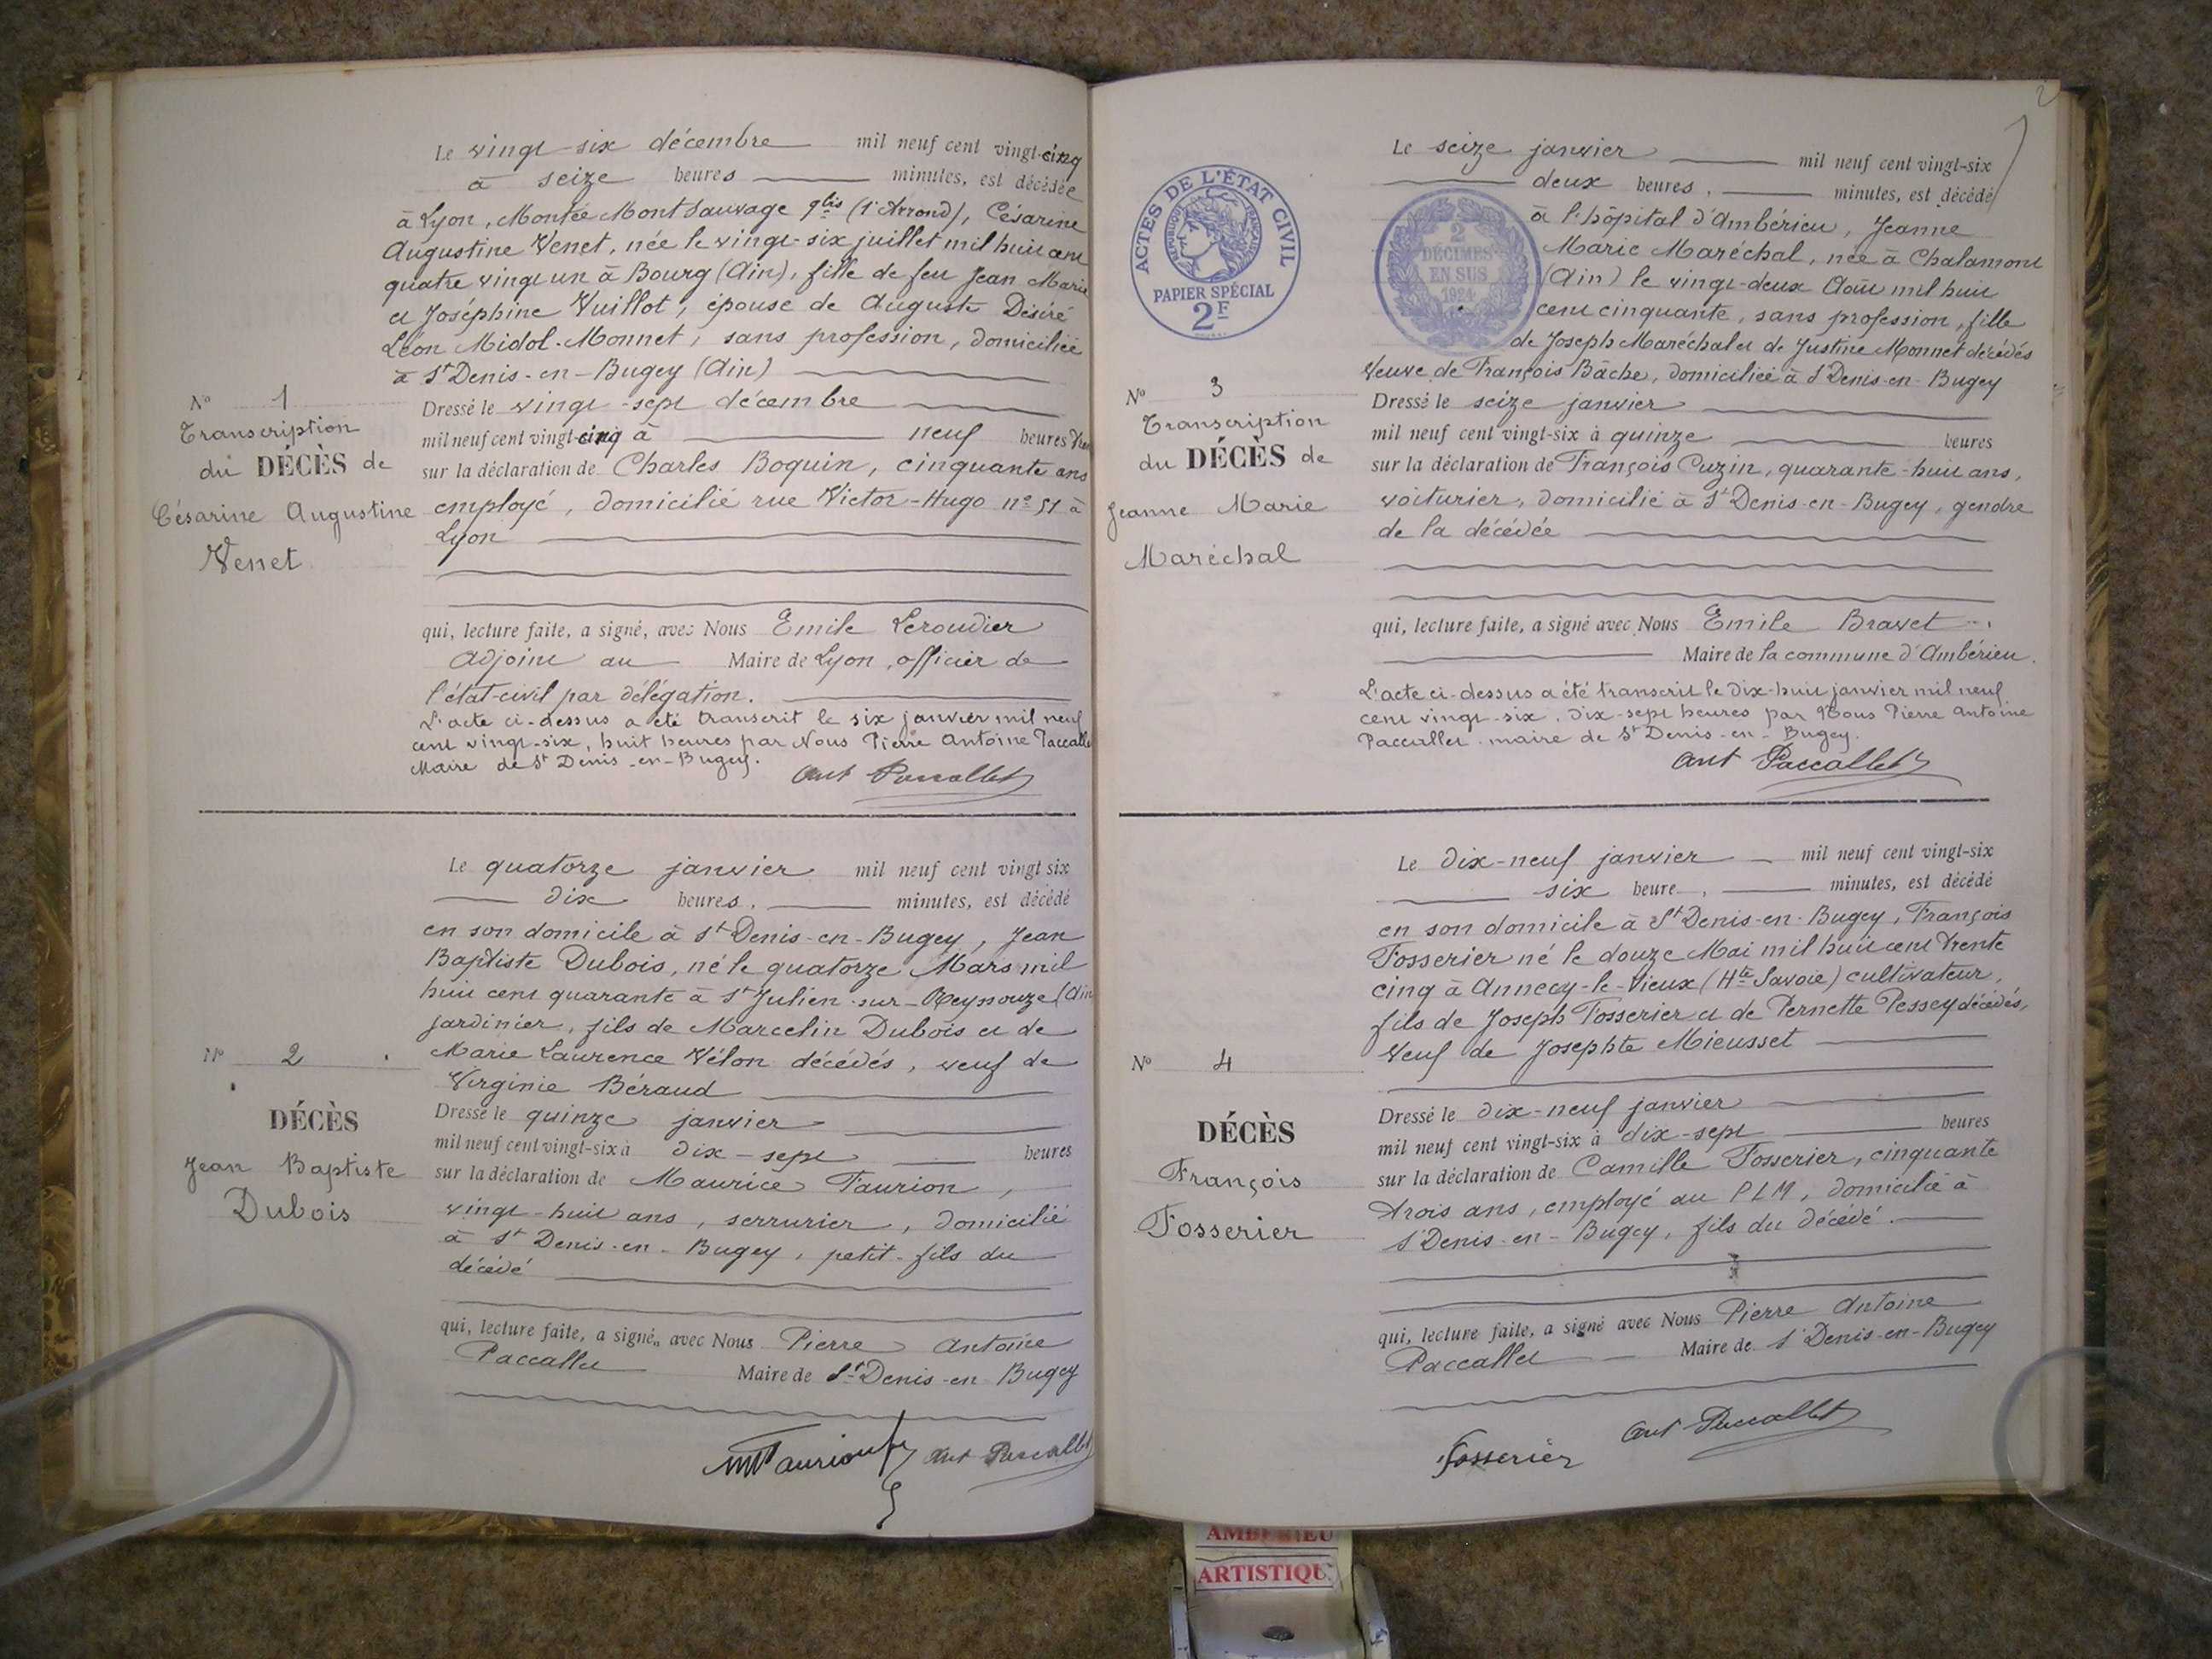 Le vingt-six décembre mil neuf cent vingt-cinq
à seize heures minutes, est décédée
à Lyon, Montée Mont Sauvage 9bis (1er Arrond), Césarine
Augustine Venet, née le vingt-six juillet mil huit cent
quatre vingt un à Bourg (Ain), fille de feu Jean Marie
et Joséphine Vuillot, épouse de Auguste Désiré
Léon Midol-Monnet, sans profession, domiciliée
à St Denis-en-Bugey (Ain)
N° 1
Transcription
du DÉCÈS de
Césarine Augustine
Venet
Dressé le vingt-sept décembre
mil neuf cent vingt-cinq à neuf heures
sur la déclaration de Charles Boquin, cinquante ans
employé, domicilié rue Victor-Hugo n° 51 à
Lyon
qui, lecture faite, a signé, avec Nous Emile Leroudier
adjoint au Maire de Lyon, officier de
l'état-civil par délégation.
L'acte ci-dessus a été transcrit le six janvier mil neuf
cent vingt-six, huit heures par Nous Pierre Antoine Paccallet
Maire de St Denis-en-Bugey.
Ant Paccallet
Le quatorze janvier mil neuf cent vingt-six
dix heures, minutes, est décédé
en son domicile à St Denis-en-Bugey, Jean
Baptiste Dubois, né le quatorze Mars mil
huit cent quarante à St Julien-sur-Reyssouze (Ain
jardinier, fils de Marcelin Dubois et de
Marie Laurence Vélon décédés, veuf de
Virginie Béraud
N° 2
DÉCÈS
Jean Baptiste
Dubois
Dressé le quinze janvier
mil neuf cent vingt-six à dix-sept heures
sur la déclaration de Maurice Taurion,
vingt-huit ans, serrurier, domicilié
à St Denis-en-Bugey, petit-fils du
décédé
qui, lecture faite, a signé, avec Nous Pierre Antoine
Paccallet Maire de St Denis-en-Bugey
Taurion Ant Paccallet
2
ACTES DE L'ÉTAT CIVIL
RÉPUBLIQUE FRANÇAISE
PAPIER SPÉCIAL
2F
2
DÉCIMES
EN SUS
1924
Le seize janvier mil neuf cent vingt-six
deux heures, minutes, est décédé
à l'hôpital d'Ambérieu, Jeanne
Marie Maréchal, née à Chalamont
(Ain) le vingt-deux Août mil huit
cent cinquante, sans profession, fille
de Joseph Maréchal et de Justine Monnet décédés
Veuve de François Bâche, domiciliée à St Denis-en-Bugey
N° 3
Transcription
du DÉCÈS de
Jeanne Marie
Maréchal
Dressé le seize janvier
mil neuf cent vingt-six à quinze heures
sur la déclaration de François Cuzin, quarante-huit ans,
voiturier, domicilié à St Denis-en-Bugey, gendre
de la décédée
qui, lecture faite, a signé avec Nous Emile Bravet
Maire de la commune d'Ambérieu.
L'acte ci-dessus a été transcrit le dix-huit janvier mil neuf
cent vingt-six, dix-sept heures par Nous Pierre Antoine
Paccallet maire de St Denis-en-Bugey.
Ant Paccallet
Le dix-neuf janvier mil neuf cent vingt-six
six heure, minutes, est décédé
en son domicile à St Denis-en-Bugey, François
Fosserier né le douze Mai mil huit cent trente
cinq à Annecy-le-Vieux (Hte Savoie) cultivateur,
fils de Joseph Fosserier et de Pernette Pessey décédés,
Veuf de Josephte Mieusset
N° 4
DÉCÈS
François
Fosserier
Dressé le dix-neuf janvier
mil neuf cent vingt-six à dix-sept heures
sur la déclaration de Camille Fosserier, cinquante
trois ans, employé au PLM, domicilié à
St Denis-en-Bugey, fils du décédé.
qui, lecture faite, a signé avec Nous Pierre Antoine
Paccallet Maire de St Denis-en-Bugey
Fosserier Ant Paccallet
AMBERIEU
ARTISTIQU